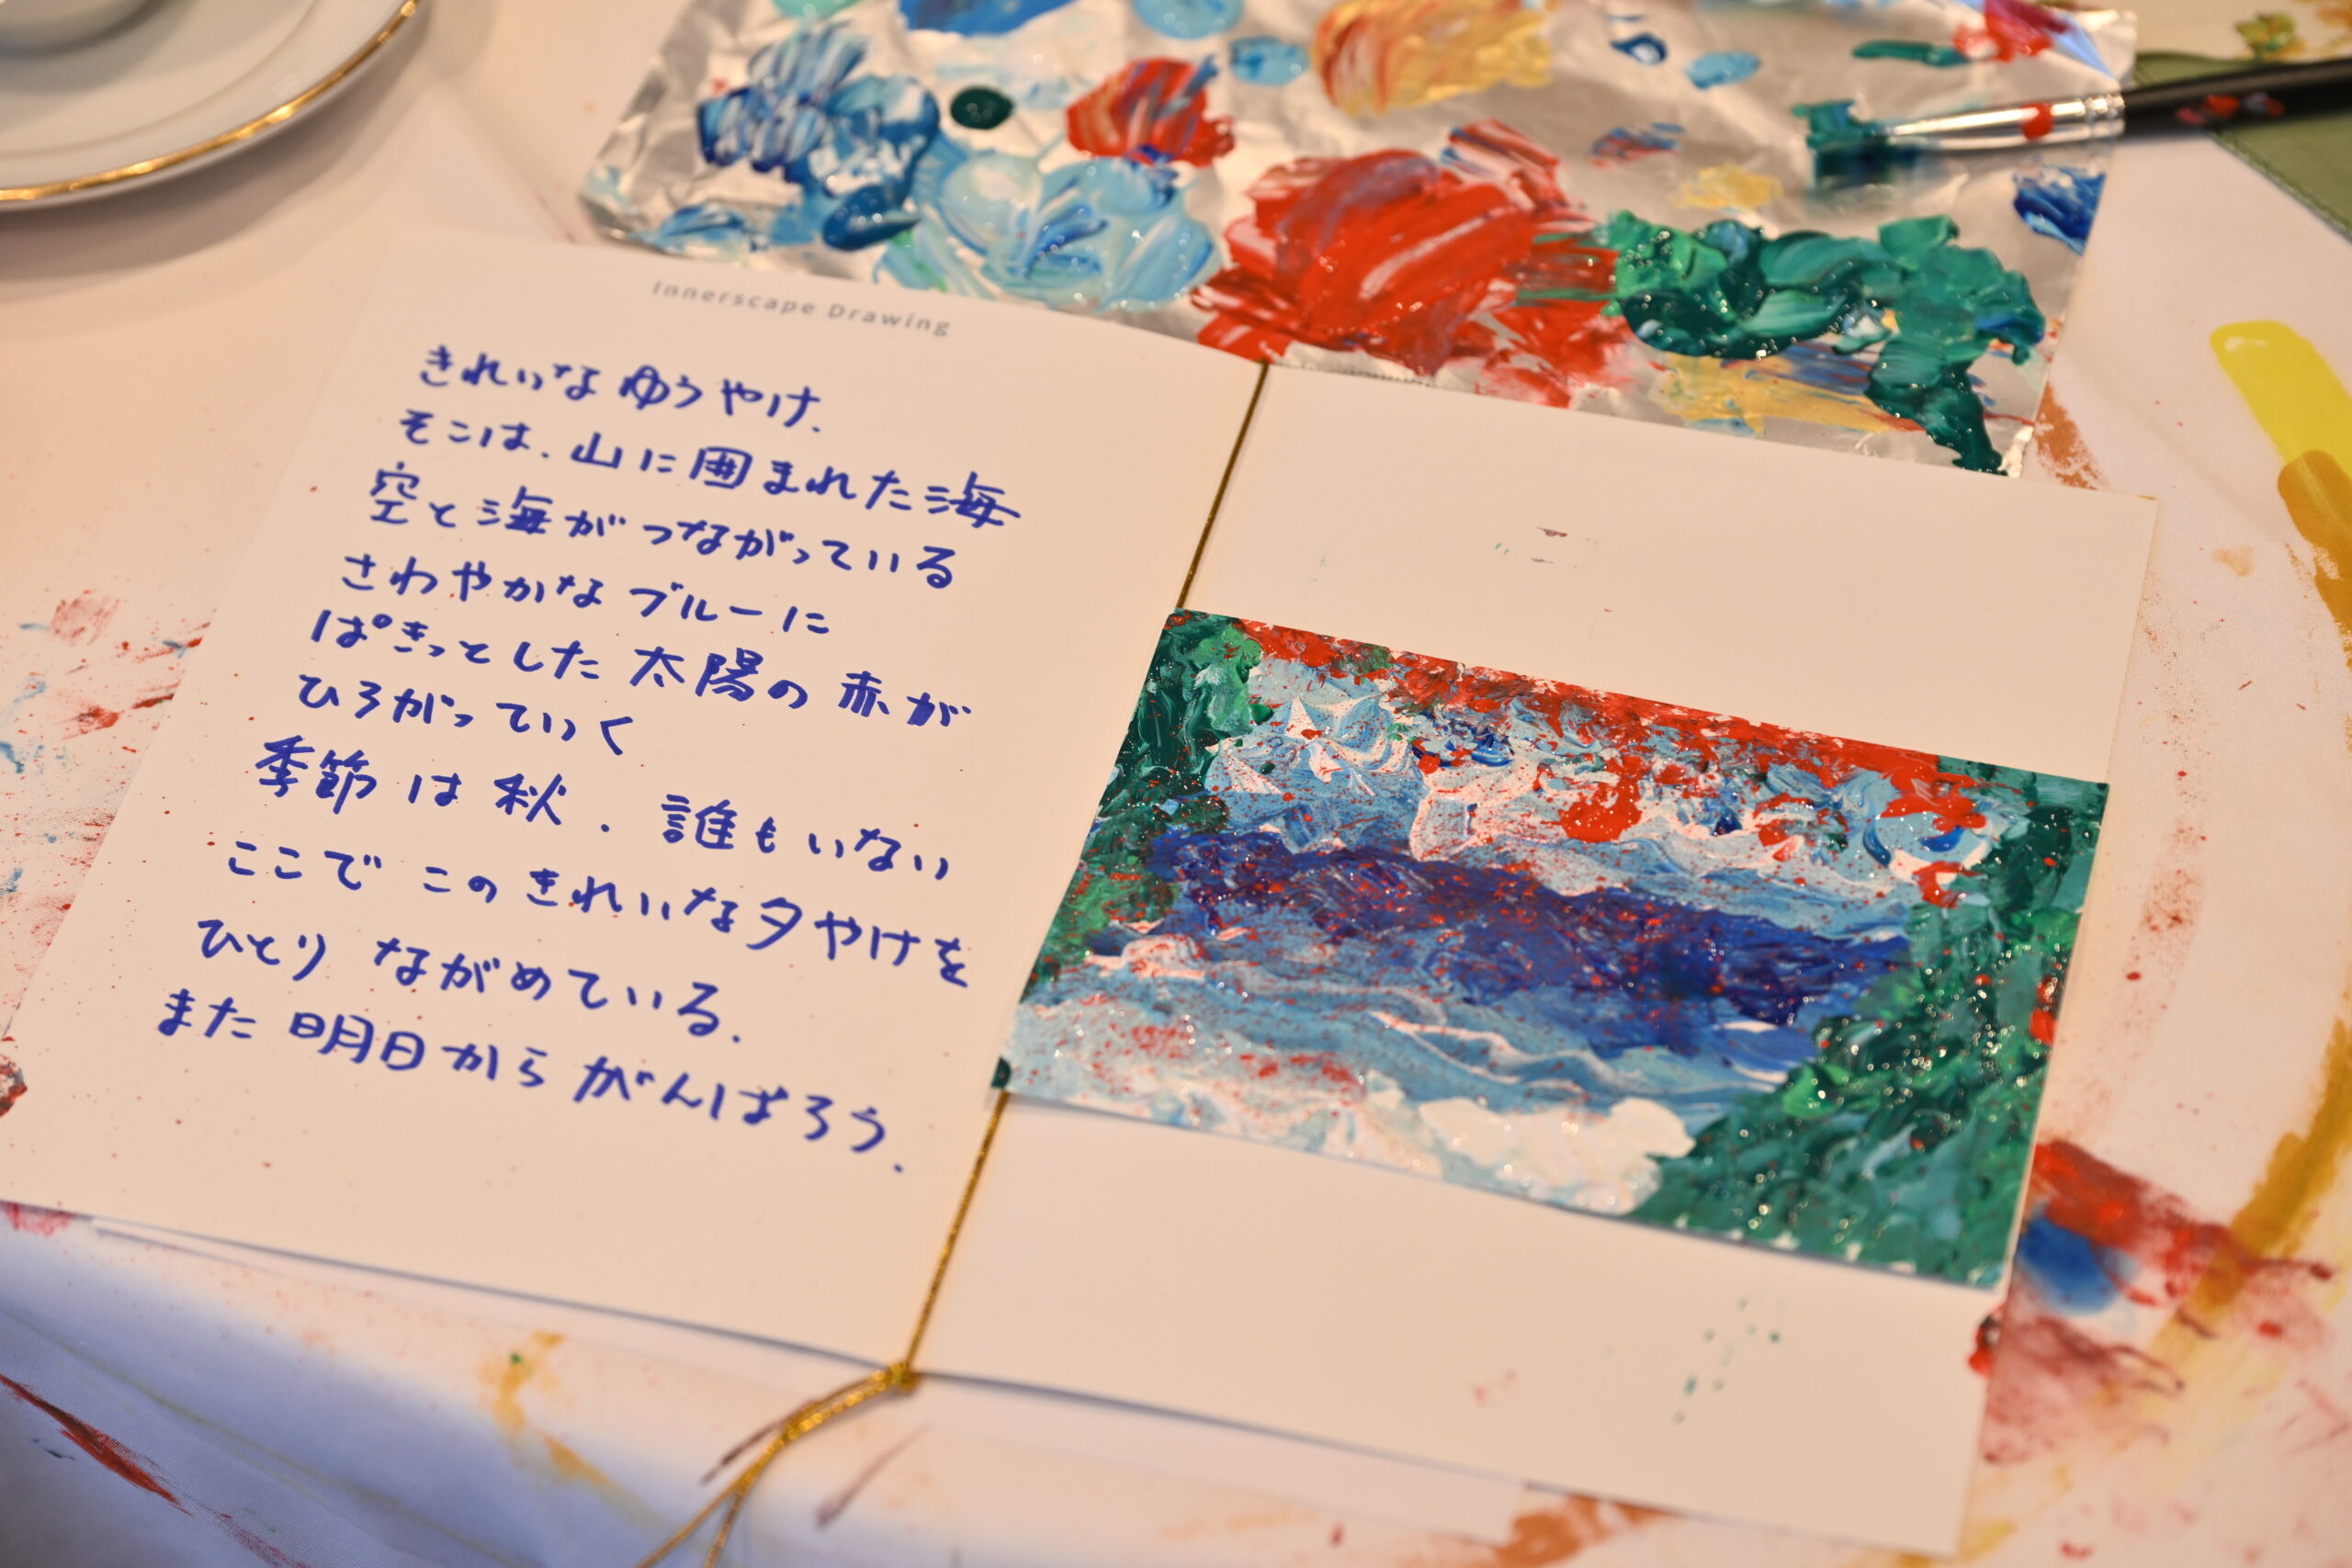 Innerscape Drawing
きれいなゆうやけ.
そこは.山に囲まれた海
空と海がつながっている
さわやかなブルーに
ぱきっとした太陽の赤が
ひろがっていく
季節は秋.誰もいない
ここでこのきれいな夕やけを
ひとりながめている.
また明日からがんばろう.